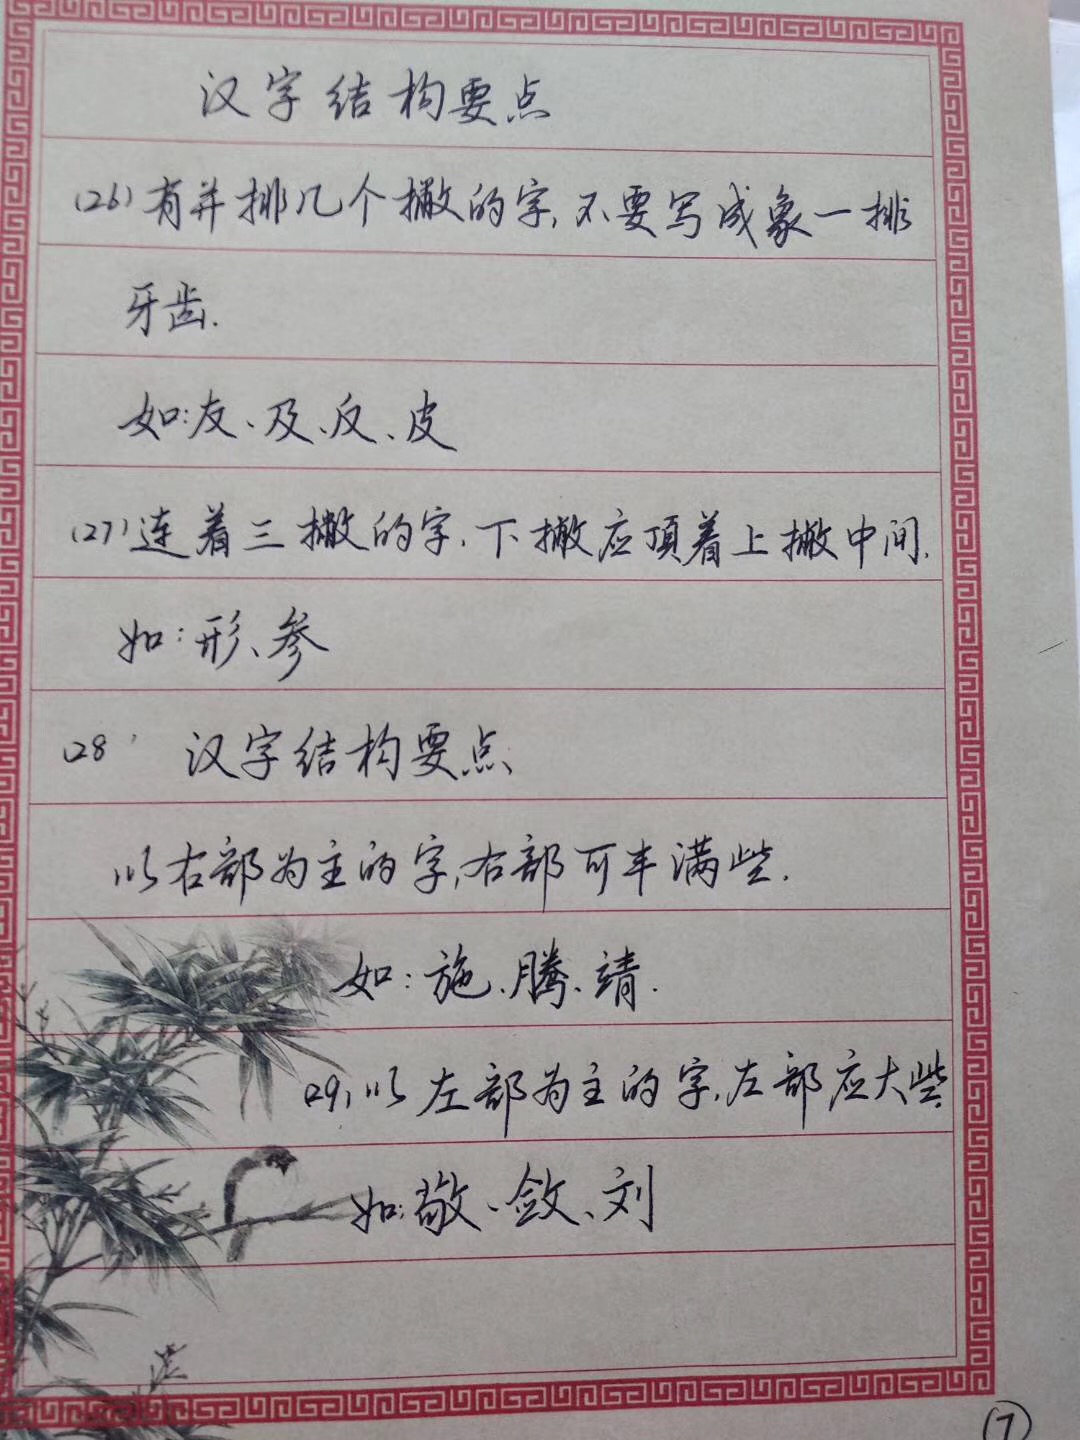 汉字结构要点
(26)有并排几个撇的字,不要写成象一排
牙齿.
如:友、及、反、皮
(27)连着三撇的字,下撇应頂着上撇中间.
如:形、参
(28) 汉字结构要点
以右部为主的字,右部可丰满些.
如:施、腾、靖.
(29)以左部为主的字,左部应大些
如:敬、敛、刘
7